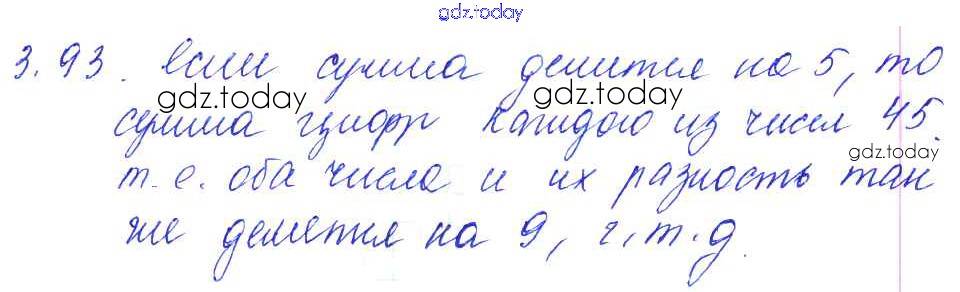 gdz.today
3.93. Если сумма делится на 5, то
gdz.today gdz.today
сумма цифр каждого из чисел 45.
gdz.today
т.е. оба числа и их разность так
же делется на 9, ч.т.д.